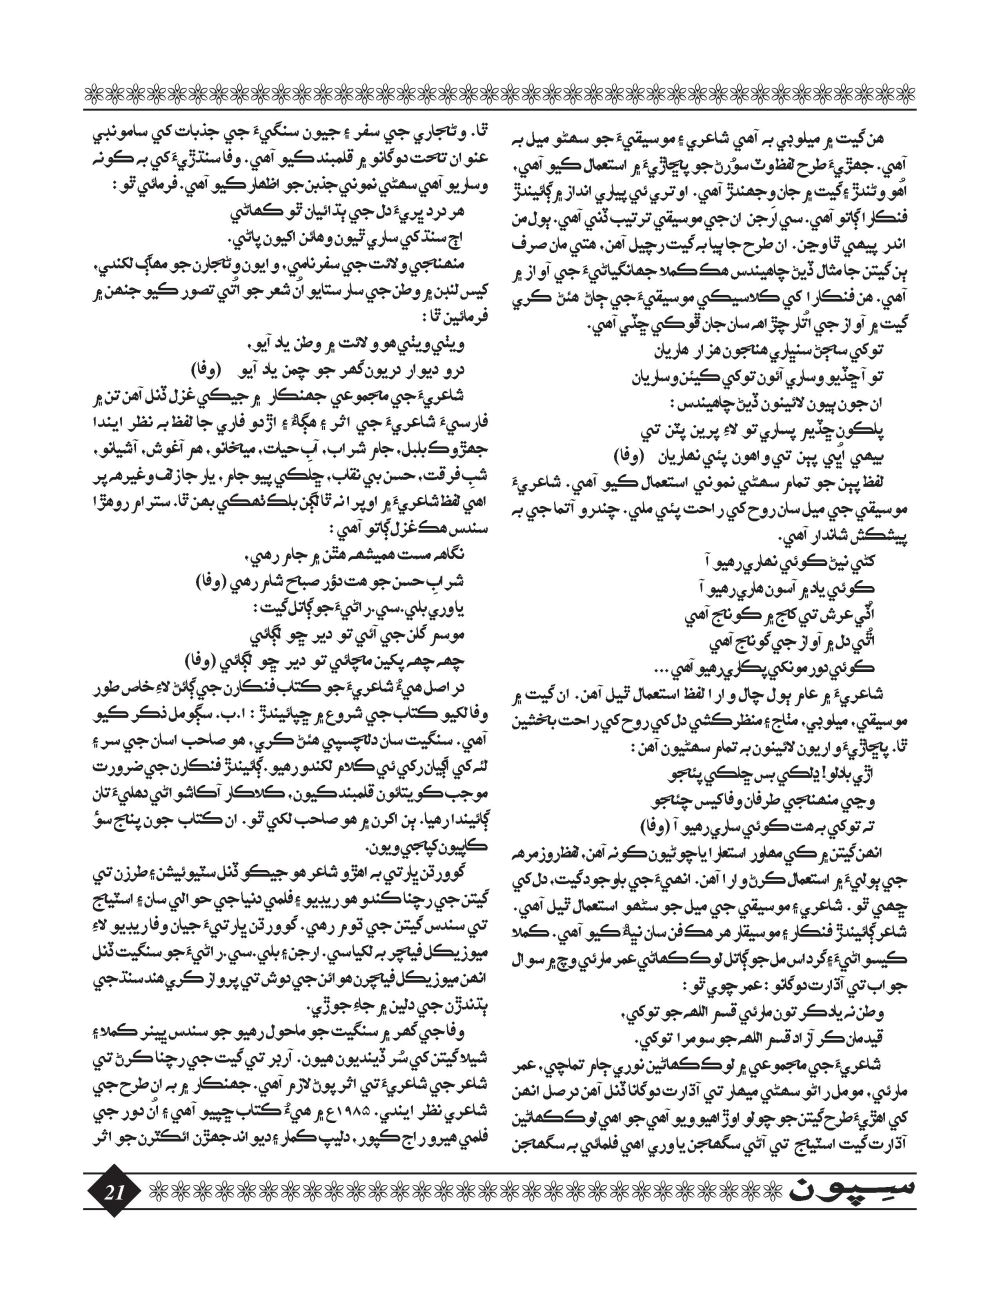 هن گيت ۾ ميلوڊي به آهي شاعري ۽ موسيقيءَ جو سھڻو ميل به
آهي. جھڙيءَ طرح لفظ وٽ سوُرڻ جو پڇاڙيءَ ۾ استعمال ڪيو آهي،
اُهو وڻندڙ ۽ گيت ۾ جان وجھندڙ آهي. اوتري ئي پياري انداز ۾ ڳائيندڙ
فنڪارا ڳاتو آهي. سي ارجن ان جي موسيقي ترتيب ڏني آهي. ٻول من
اندر پيھي ٿا وڃن. ان طرح جا ٻيا به گيت رچيل آهن، هتي مان صرف
ٻن گيتن جا مثال ڏيڻ چاهيندس هڪ ڪملا جھانگياڻيءَ جي آواز ۾
آهي. هن فنڪارا کي ڪلاسيڪي موسيقيءَ جي ڄاڻ هئڻ ڪري
گيت ۾ آواز جي اُتار چڙاهه سان جان ڦوڪي ڇڏي آهي.
توکي ساڄن سنڀاري هنجون هزار هاريان
تو آ ڇڏيو وساري آئون توکي ڪيئن وساريان
ان جون ٻيون لائينون ڏيڻ چاهيندس :
پلڪون ڇڏيم پساري تو لاءِ پرين پٽن تي
بيھي اڀي پٻن تي واهون پئي نھاريان (وفا)
لفظ پٻن جو تمام سھڻي نموني استعمال ڪيو آهي. شاعريءَ
موسيقي جي ميل سان روح کي راحت پئي ملي. چندرو آتما جي به
پيشڪش شاندار آهي.
کڻي نيڻ ڪوئي نھاري رهيو آ
ڪوئي ياد ۾ آسون هاري رهيو آ
اُڏي عرش تي کاڄ ۾ ڪونج آهي
اُٿي دل ۾ آواز جي گونج آهي
ڪوئي دور مونکي پڪاري رهيو آهي...
شاعريءَ ۾ عام ٻول چال وارا لفظ استعمال ٿيل آهن. ان گيت ۾
موسيقي، ميلوڊي، مٺاج ۽ منظر ڪشي دل کي روح کي راحت بخشين
ٿا. پڇاڙيءَ واريون لائينون به تمام سھڻيون آهن :
اڙي بادلو! ڍلڪي بس ڇلڪي پئجو
وڃي منھنجي طرفان وفا کيس چئجو
ته توکي به هت ڪوئي ساري رهيو آ (وفا)
انهن گيتن ۾ کي مھاور استعارا يا چوڻيون ڪونه آهن، لفظ روزمرهه
جي ٻوليءَ ۾ استعمال ڪرڻ وارا آهن. انهيءَ جي باوجود گيت، دل کي
ڇھي ٿو. شاعري ۽ موسيقي جي ميل جو سٺو استعمال ٿيل آهي.
شاعر ڳائيندڙ فنڪار ۽ موسيقار هر هڪ فن سان نڀاءُ ڪيو آهي. ڪملا
ڪيسواڻيءَ ۽ گرداس مل جو ڳاتل لوڪ ڪھاڻي عمر مارئي وچ ۾ سوال
جواب تي آڌارت دوگانو : عمر چوي ٿو :
وطن نه ياد ڪر تون مارئي قسم الله جو توکي،
قيد مان ڪر آزاد قسم الله جو سومرا توکي.
شاعريءَ جي مجموعي ۾ لوڪ ڪھاڻين نوري ڄام تماچي، عمر
مارئي، مومل راڻو سھڻي ميھار تي آڌارت دوگانا ڏنل آهن درصل انهن
کي اهڙيءَ طرح گيتن جو چولو اوڙاهيو ويو آهي جو اهي لوڪ ڪھاڻين
آڌارت گيت اسٽيج تي آڻي سگھجن يا وري اهي فلمائي به سگھجن
ٿا. وڻجاري جي سفر ۽ جيون سنگيءَ جي جذبات کي سامونڊي
عنوان تاحت دوگانو ۾ قلمبند ڪيو آهي. وفا سنڌڙيءَ کي به ڪونه
وساريو آهي سھڻي نموني جذبن جو اظھار ڪيو آهي. فرمائي ٿو :
هر درد ڀريءَ دل جي ٻڌائيان ٿو ڪھاڻي
اڄ سنڌ کي ساري ٿيون وهائن اکيون پاڻي.
منھنجي ولائت جي سفرنامي، وايون وڻجارن جو مھاڳ لکندي،
کيس لنڊن ۾ وطن جي سار ستايو اُن شعر جو اُتي تصور ڪيو جنھن ۾
فرمائين ٿا :
ويٺي ويٺي هوولائت ۾ وطن ياد آيو،
درو ديوار دريون گھر جو چمن ياد آيو (وفا)
شاعريءَ جي مجموعي جھنڪار ۾ جيڪي غزل ڏنل آهن تن ۾
فارسيءَ شاعريءَ جي اثر ۽ هڳاءُ ۽ اڙدو فاري جا لفظ به نظر ايندا
جھڙوڪ بلبل، جام شراب، آبِ حيات، ميخانو، هم آغوش، آشيانو،
شبِ فرقت، حسن بي نقاب، ڇلڪي پيو جام، يار جا زلف وغيره پر
اهي لفظ شاعريءَ ۾ اوپرا نه ٿا لڳن بلڪ ٺھڪي بھن ٿا. سترام روهڙا
سندس هڪ غزل ڳاتو آهي :
نگاهه مست هميشهه هٿن ۾ جام رهي،
شرابِ حسن جو هت دؤر صباح شام رهي (وفا)
ياوري بلي.سي.راڻيءَ جو ڳاتل گيت :
موسم گلن جي آئي تو دير ڇو لڳائي
چھه چھه پکين مچائي تو دير ڇو لڳائي (وفا)
دراصل هيءُ شاعريءَ جو ڪتاب فنڪارن جي ڳائڻ لاءِ خاص طور
وفا لکيو ڪتاب جي شروع ۾ ڇپائيندڙ : ا.ب. سڳومل ذڪر ڪيو
آهي. سنگيت سان دلچسپي هئڻ ڪري، هو صاحب اسان جي سر ۽
لئه کي اڳيان رکي ئي ڪلام لکندو رهيو. ڳائيندڙ فنڪارن جي ضرورت
موجب ڪويتائون قلمبند ڪيون، ڪلاڪار آڪاشواڻي دهليءَ تان
ڳائيندا رهيا. ٻن اکرن ۾ هو صاحب لکي ٿو. ان ڪتاب جون پنج سؤ
ڪاپيون کپجي ويون.
گوورڌن ڀارتي به اهڙو شاعر هو جيڪو ڏنل سٽيوئيشن ۽ طرزن تي
گيتن جي رچنا ڪندو هو ريڊيو ۽ فلمي دنيا جي حوالي سان ۽ اسٽيج
تي سندس گيتن جي ڌوم رهي. گوورڌن ڀارتيءَ جيان وفا ريڊيو لاءِ
ميوزيڪل فيچر به لکيا سي. ارجن ۽ بلي.سي.راڻيءَ جو سنگيت ڏنل
انهن ميوزيڪل فيچرن هوائن جي دوش تي پرواز ڪري هند سنڌ جي
ٻڌندڙن جي دلين ۾ جاءِ جوڙي.
وفا جي گھر ۾ سنگيت جو ماحول رهيو جو سندس ڀينر ڪملا ۽
شيلا گيتن کي سُر ڏينديون هيون. آربر تي گيت جي رچنا ڪرڻ تي
شاعر جي شاعريءَ تي اثر پوڻ لازم آهي. جھنڪار ۾ به ان طرح جي
شاعري نظر ايندي. ۱۹۸۵ع ۾ هيءُ ڪتاب ڇپيو آهي ۽ اُن دور جي
فلمي هيرو راج ڪپور، دليپ ڪمار ۽ ديوانند جھڙن ائڪٽرن جو اثر
سِپون
21